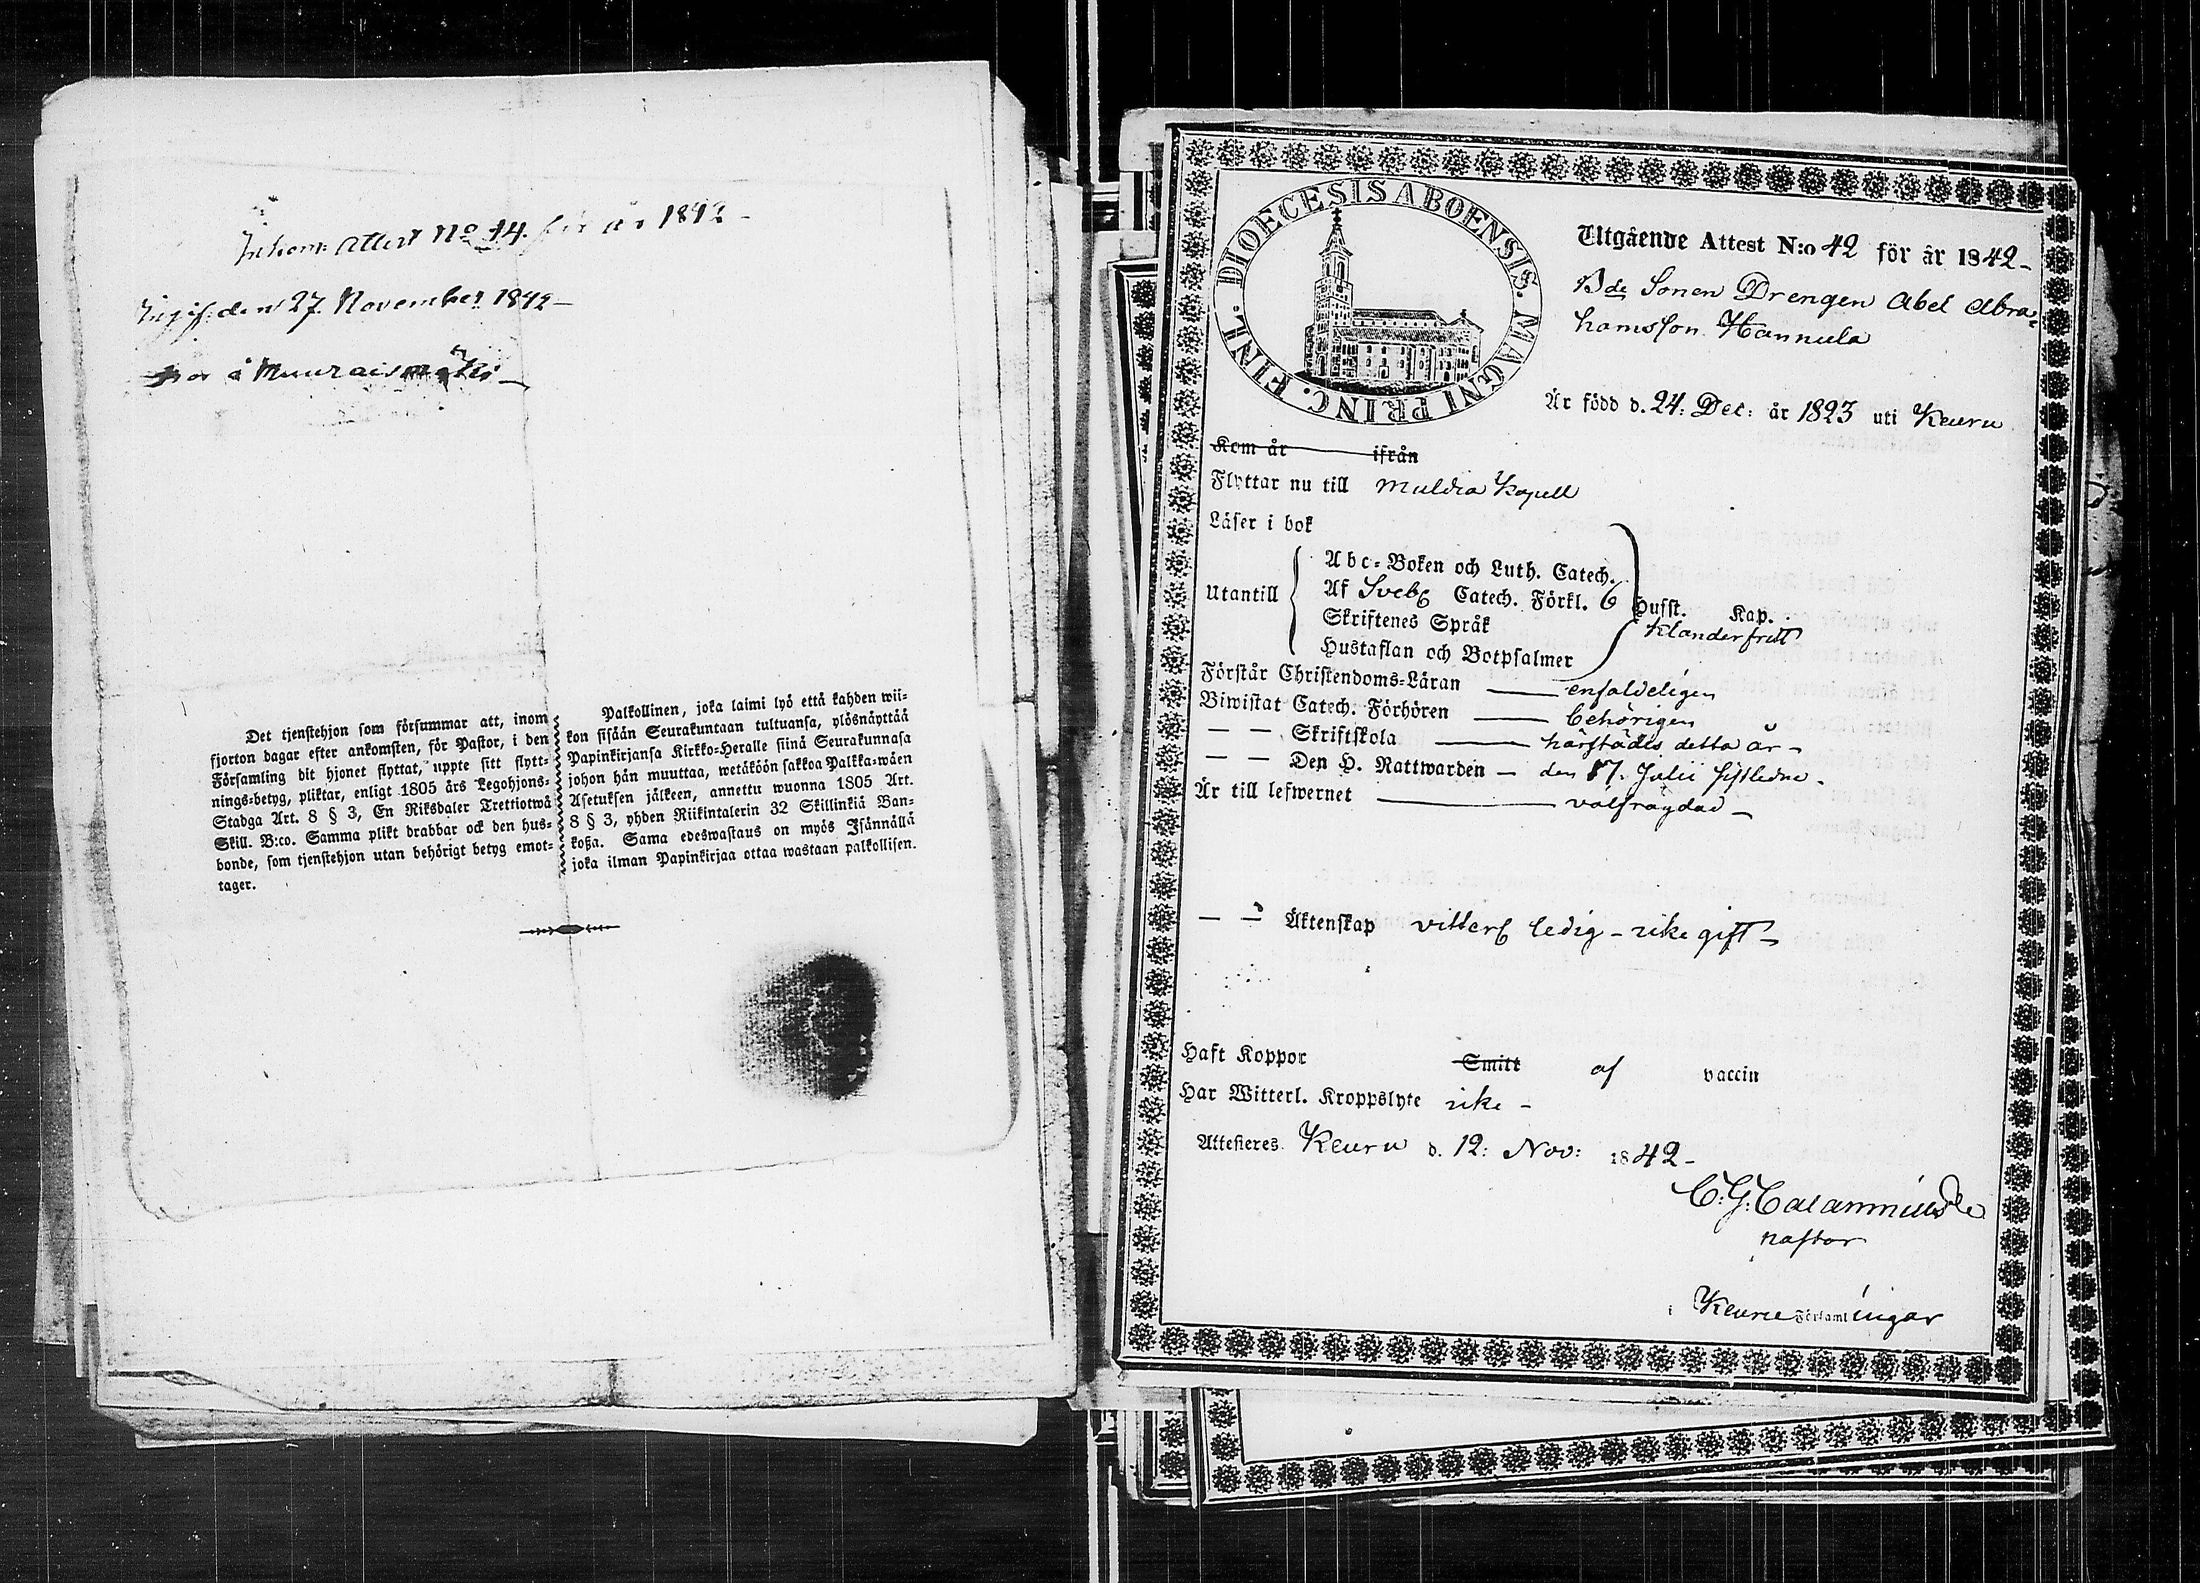 Inkom: Attest No 14. för år 1842 –
Ingif: den 27. November 1842 –
bor å Muuraismäki –
Det tjenstehjon som försummar att, inom
fjorton dagar efter ankomsten, för Pastor, i den
Församling dit hjonet flyttat, uppte sitt flytt-
nings-betyg, pliktar, enligt 1805 års Legohjons-
Stadga Art. 8 § 3, En Riksdaler Trettiotwå
Skill. B:co. Samma plikt drabbar ock den hus-
bonde, som tjenstehjon utan behörigt betyg emot-
tager.
Palkollinen, joka laimi lyö että kahden wii-
kon sisään Seurakuntaan tultuansa, ylösnäyttää
Papinkirjansa Kirkko-Heralle siinä Seurakunnasa
johon hän muuttaa, wetäköön sakkoa Palkka-wäen
Asetuksen jälkeen, annettu wuonna 1805 Art.
8 § 3, yhden Riikintalerin 32 Skillinkiä Ban-
koßa. Sama edeswastaus on myös Isännällä
joka ilman Papinkirjaa ottaa wastaan palkollisen.
DIOECESIS ABOENSIS. MAGNI PRINC. FINL.
Utgående Attest N:o 42 för år 1842 –
Bde Sonen Drengen Abel Abra=
hamsson Hannula
Är född d. 24: Dec: år 1823 uti Keuru
Kom år ifrån
Flyttar nu till Muldia Kapell
Läser i bok
Utantill
Abc-Boken och Luth. Catech.
Af Svebg Catech. Förkl. 6
Skriftenes Språk
Hustaflan och Botpsalmer
Husst. Kap.
klanderfritt
Förstår Christendoms-Läran — enfaldeligen
Biwistat Catech. Förhören — behörigen
— — Skriftskola — härstädes detta år –
— — Den H. Nattwarden – den 17. Julii sistledne –
Är till lefwernet — välfrägdad –
— — Äktenskap vitterl ledig – icke gift –
Haft Koppor Smitt af vaccin
Har Witterl. Kroppslyte icke –
Attesteras Keuru d. 12: Nov: 1842 –
C: G: Calamnius
Pastor
i Keuru Församlingar